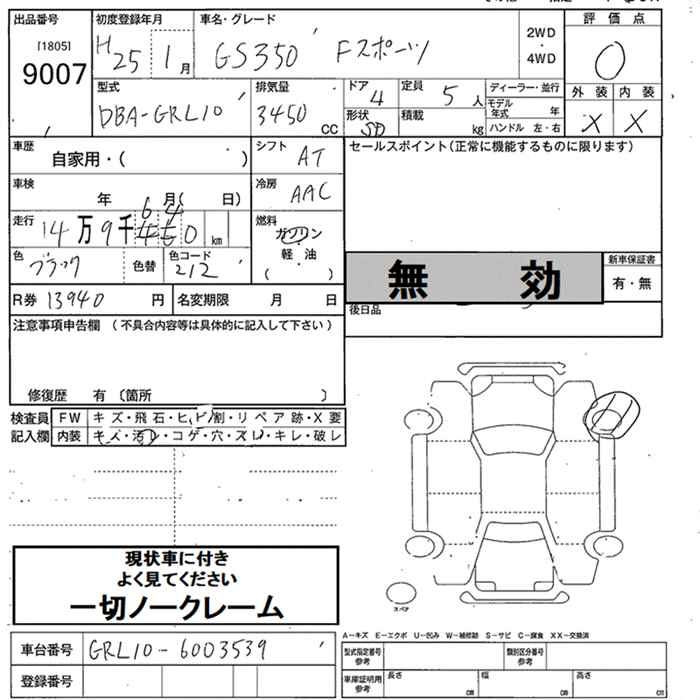 出品番号
[1805]
9007
初度登録年月
H25 1月
車名・グレード
GS350 Fスポーツ
2WD
・
4WD
評価点
0
外装 内装
X X
型式
DBA-GRL10
排気量
3450 CC
ドア 4
形状 SD
定員 5人
積載 kg
ディーラー・並行
モデル年式 年
ハンドル 左・右
車歴
自家用・( )
シフト AT
車検 年 月( 日)
冷房 AAC
走行
14万9千 km
燃料
ガソリン
・
軽油
( )
色 ブラック
色替
色コード 212
R券 13940円
名変期限 月 日
セールスポイント(正常に機能するものに限ります)
無効
新車保証書
有・無
後日品
注意事項申告欄(不具合内容等は具体的に記入して下さい)
修復歴 有〔箇所 〕
検査員記入欄
FW キズ・飛石・ヒビ割・リペア跡・X要
内装 キズ・汚レ・コゲ・穴・スレ・キレ・破レ
現状車に付き
よく見てください
一切ノークレーム
スペア
車台番号 GRL10-6003539
登録番号
A-キズ E-エクボ U-凹み W-補修跡 S-サビ C-腐食 XX-交換済
型式指定番号 参考
類別区分番号 参考
車庫証明用 参考
長さ cm
幅 cm
高さ cm